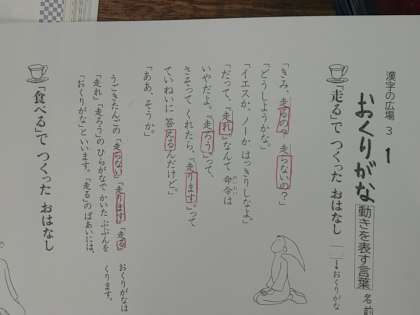 漢字の広場 3
1
おくりがな
動きを表す言葉
名前
「走る」で つくった おはなし
→おくりがな
「きみ、走るの？ 走らないの？」
「どうしようかな。」
「イエスか、ノーか はっきりしなよ。」
「だって、『走れ』なんて 命令は
いやだよ。『走ろう』って、
さそって くれたら、『走ります』って
ていねいに 答えるんだけど。」
「ああ、そうか。」
うごきたんごの「走らない」「走ります」「走る」
「走れ」「走ろう」のひらがなで かいた ぶぶんを
「おくりがな」といいます。「走る」のばあいには、
おくりがなは
くります。
「食べる」で つくった おはなし